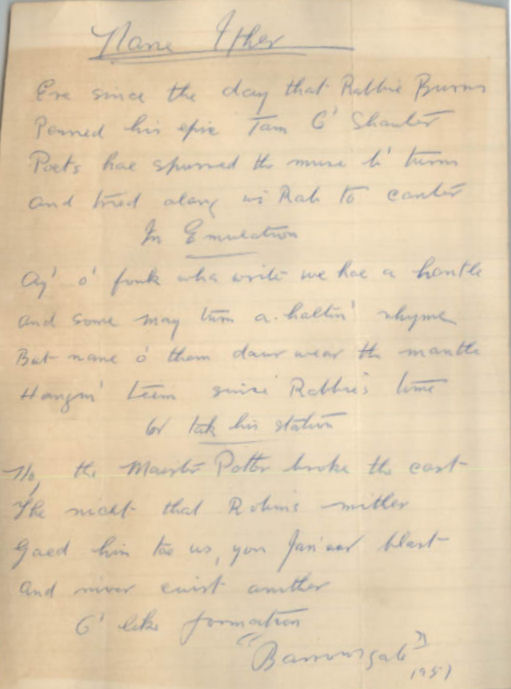 Nane Ither
Ere since the day that Rabbie Burns
Penned his epic Tam O' Shanter
Poets hae spurred the muse b' turns
And tried alang wi Rab to canter
In Emulation
Ay' o' fouk wha write we hae a hantle
And some may turn a haltin' rhyme
But nane o' them daur wear the mantle
Hangin' teem since Rabbie's time
Or tak his station
No, the Maister Potter broke the cast
The nicht that Robin's mither
Gaed him tae us, yon Jan'war blast
And niver cuist anither
O' like formation
"Barronsgate"